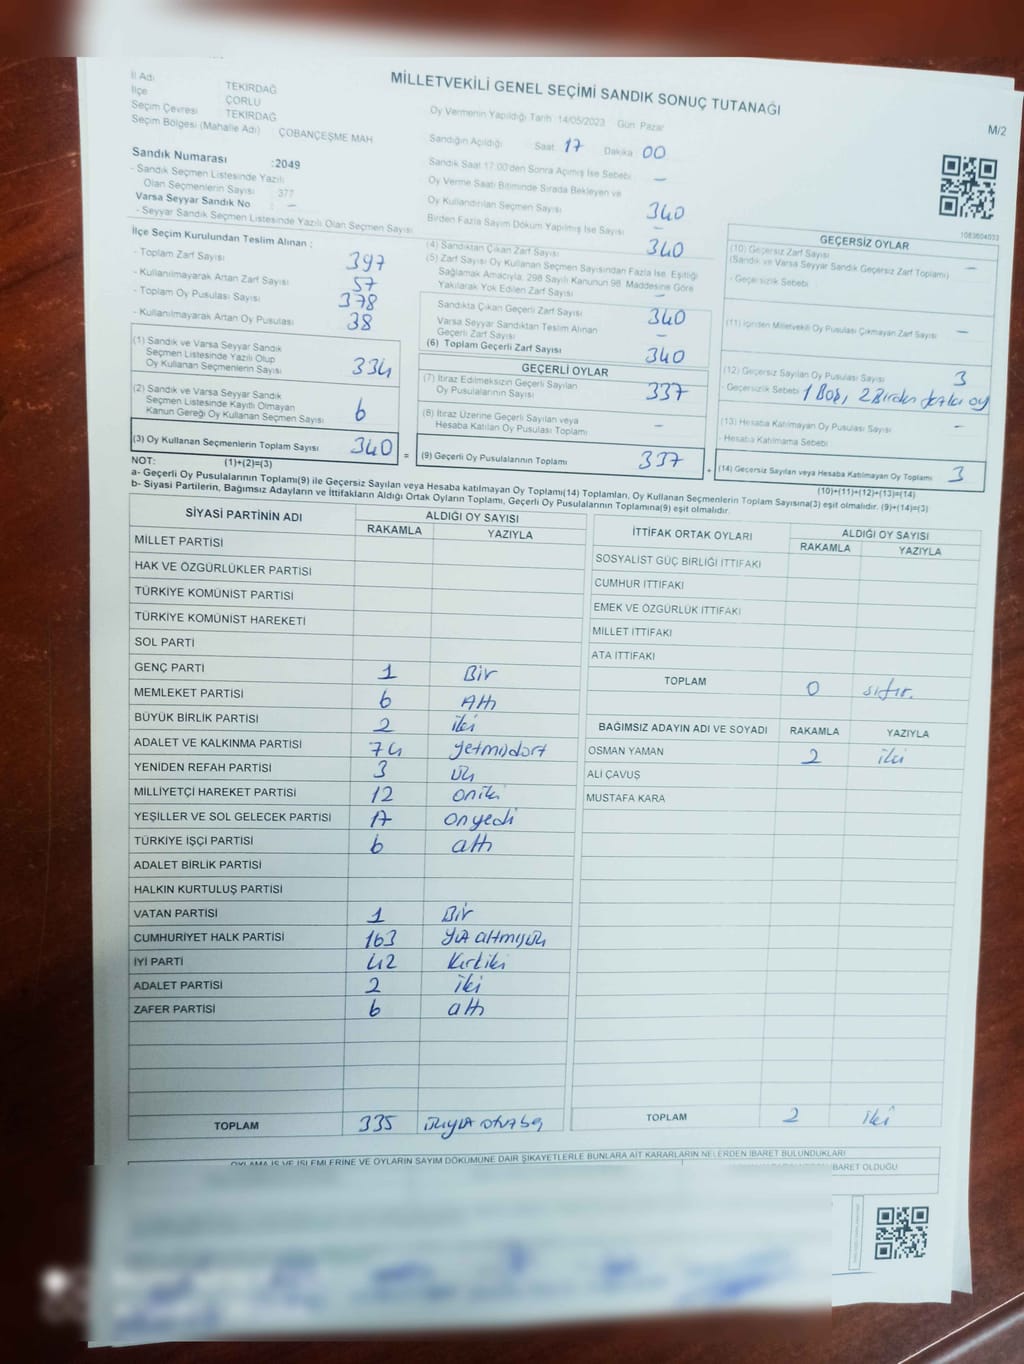 MİLLETVEKİLİ GENEL SEÇİMİ SANDIK SONUÇ TUTANAĞI
M/2
İl Adı TEKİRDAĞ
İlçe ÇORLU
Seçim Çevresi TEKİRDAĞ
Seçim Bölgesi (Mahalle Adı) ÇOBANÇEŞME MAH
Sandık Numarası :2049
- Sandık Seçmen Listesinde Yazılı
Olan Seçmenlerin Sayısı : 377
Varsa Seyyar Sandık No : –
- Seyyar Sandık Seçmen Listesinde Yazılı Olan Seçmen Sayısı
Oy Vermenin Yapıldığı Tarih 14/05/2023 Gün Pazar
Sandığın Açıldığı Saat 17 Dakika 00
Sandık Saat 17:00'den Sonra Açılmış İse Sebebi –
Oy Verme Saati Bitiminde Sırada Bekleyen ve
Oy Kullandırılan Seçmen Sayısı 340
Birden Fazla Sayım Döküm Yapılmış İse Sayısı –
İlçe Seçim Kurulundan Teslim Alınan :
- Toplam Zarf Sayısı 397
- Kullanılmayarak Artan Zarf Sayısı 57
- Toplam Oy Pusulası Sayısı 378
- Kullanılmayarak Artan Oy Pusulası 38
(1) Sandık ve Varsa Seyyar Sandık
Seçmen Listesinde Yazılı Olup
Oy Kullanan Seçmenlerin Sayısı 334
(2) Sandık ve Varsa Seyyar Sandık
Seçmen Listesinde Kayıtlı Olmayan
Kanun Gereği Oy Kullanan Seçmen Sayısı 6
(3) Oy Kullanan Seçmenlerin Toplam Sayısı 340 =
(4) Sandıktan Çıkan Zarf Sayısı 340
(5) Zarf Sayısı Oy Kullanan Seçmen Sayısından Fazla İse, Eşitliği
Sağlamak Amacıyla, 298 Sayılı Kanunun 98. Maddesine Göre
Yakılarak Yok Edilen Zarf Sayısı –
Sandıkta Çıkan Geçerli Zarf Sayısı 340
Varsa Seyyar Sandıktan Teslim Alınan
Geçerli Zarf Sayısı –
(6) Toplam Geçerli Zarf Sayısı 340
GEÇERLİ OYLAR
(7) İtiraz Edilmeksizin Geçerli Sayılan
Oy Pusulalarının Sayısı 337
(8) İtiraz Üzerine Geçerli Sayılan veya
Hesaba Katılan Oy Pusulası Toplamı –
(9) Geçerli Oy Pusulalarının Toplamı 337 +
1083604033
GEÇERSİZ OYLAR
(10) Geçersiz Zarf Sayısı –
(Sandık ve Varsa Seyyar Sandık Geçersiz Zarf Toplamı)
- Geçersizlik Sebebi
(11) İçinden Milletvekili Oy Pusulası Çıkmayan Zarf Sayısı –
(12) Geçersiz Sayılan Oy Pusulası Sayısı 3
- Geçersizlik Sebebi 1 Boş, 2 Birden fazla oy
(13) Hesaba Katılmayan Oy Pusulası Sayısı –
- Hesaba Katılmama Sebebi
(14) Geçersiz Sayılan veya Hesaba Katılmayan Oy Toplamı 3
NOT: (1)+(2)=(3) (10)+(11)+(12)+(13)=(14)
a- Geçerli Oy Pusulalarının Toplamı(9) ile Geçersiz Sayılan veya Hesaba katılmayan Oy Toplamı(14) Toplamları, Oy Kullanan Seçmenlerin Toplam Sayısına(3) eşit olmalıdır. (9)+(14)=(3)
b- Siyasi Partilerin, Bağımsız Adayların ve İttifakların Aldığı Ortak Oyların Toplamı, Geçerli Oy Pusulalarının Toplamına(9) eşit olmalıdır.
SİYASİ PARTİNİN ADI ALDIĞI OY SAYISI
RAKAMLA YAZIYLA
MİLLET PARTİSİ
HAK VE ÖZGÜRLÜKLER PARTİSİ
TÜRKİYE KOMÜNİST PARTİSİ
TÜRKİYE KOMÜNİST HAREKETİ
SOL PARTİ
GENÇ PARTİ 1 Bir
MEMLEKET PARTİSİ 6 Altı
BÜYÜK BİRLİK PARTİSİ 2 iki
ADALET VE KALKINMA PARTİSİ 74 yetmişdört
YENİDEN REFAH PARTİSİ 3 üç
MİLLİYETÇİ HAREKET PARTİSİ 12 oniki
YEŞİLLER VE SOL GELECEK PARTİSİ 17 onyedi
TÜRKİYE İŞÇİ PARTİSİ 6 altı
ADALET BİRLİK PARTİSİ
HALKIN KURTULUŞ PARTİSİ
VATAN PARTİSİ 1 Bir
CUMHURİYET HALK PARTİSİ 163 yüz altmışüç
İYİ PARTİ 42 kırkiki
ADALET PARTİSİ 2 iki
ZAFER PARTİSİ 6 altı
TOPLAM 335 üçyüz otuzbeş
İTTİFAK ORTAK OYLARI ALDIĞI OY SAYISI
RAKAMLA YAZIYLA
SOSYALİST GÜÇ BİRLİĞİ İTTİFAKI
CUMHUR İTTİFAKI
EMEK VE ÖZGÜRLÜK İTTİFAKI
MİLLET İTTİFAKI
ATA İTTİFAKI
TOPLAM 0 sıfır.
BAĞIMSIZ ADAYIN ADI VE SOYADI RAKAMLA YAZIYLA
OSMAN YAMAN 2 iki
ALİ ÇAVUŞ
MUSTAFA KARA
TOPLAM 2 iki
OYLAMA İŞ VE İŞLEMLERİNE VE OYLARIN SAYIM DÖKÜMÜNE DAİR ŞİKAYETLERLE BUNLARA AİT KARARLARIN NELERDEN İBARET BULUNDUKLARI
İBARET OLDUĞU